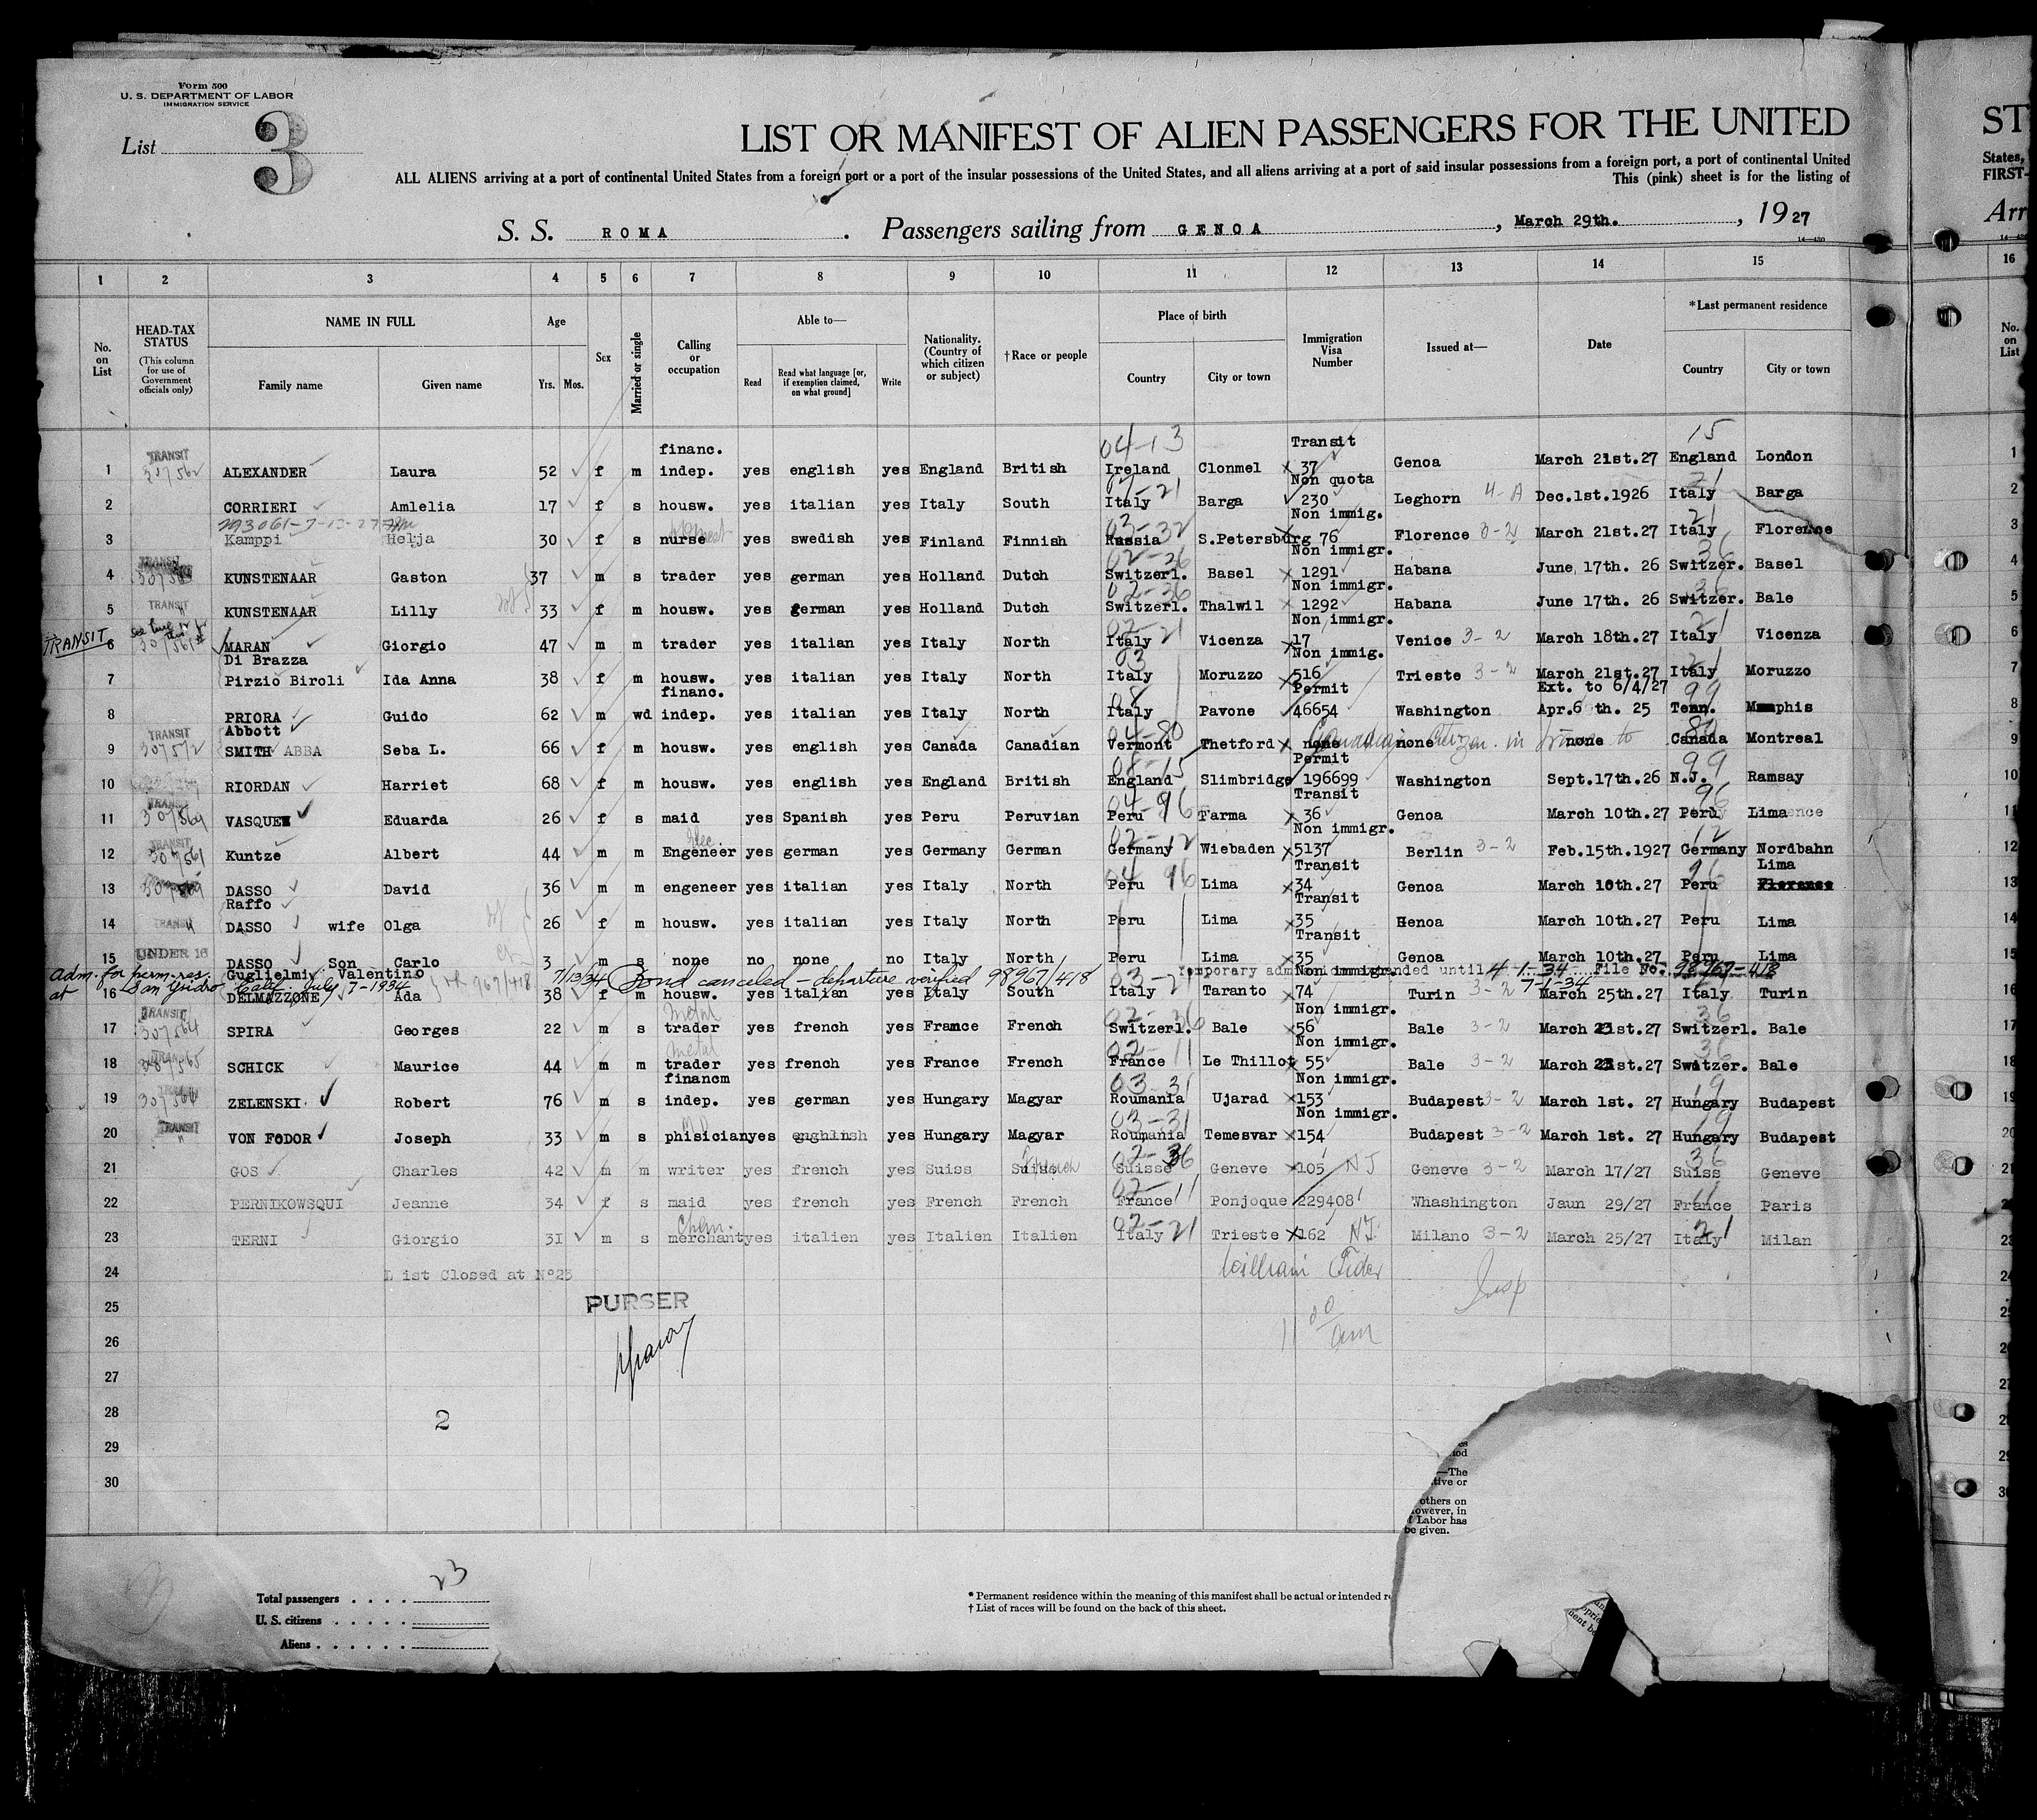 Form 500
U. S. DEPARTMENT OF LABOR
IMMIGRATION SERVICE
List 3
LIST OR MANIFEST OF ALIEN PASSENGERS FOR THE UNITED
ST
ALL ALIENS arriving at a port of continental United States from a foreign port or a port of the insular possessions of the United States, and all aliens arriving at a port of said insular possessions from a foreign port, a port of continental United
States,
This (pink) sheet is for the listing of
FIRST-
S. S. ROMA. Passengers sailing from GENOA, March 29th., 1927
Arr
14—430
1 2 3 4 5 6 7 8 9 10 11 12 13 14 15 16
No. on List
HEAD-TAX STATUS
(This column for use of Government officials only)
NAME IN FULL
Family name Given name
Age
Yrs. Mos.
Sex
Married or single
Calling or occupation
Able to—
Read Read what language [or, if exemption claimed, on what ground] Write
Nationality. (Country of which citizen or subject)
†Race or people
Place of birth
Country City or town
Immigration Visa Number
Issued at—
Date
*Last permanent residence
Country City or town
No. on List
financ. 04-13 Transit 15
1 TRANSIT 307562 ALEXANDER Laura 52 f m indep. yes english yes England British Ireland Clonmel 37 Genoa March 21st.27 England London 1
Non quota
2 CORRIERI Amlelia 17 f s housw. yes italian yes Italy South Italy Barga 230 Leghorn 4-A Dec.1st.1926 Italy Barga 2
Non immig.
3 Kamppi Helja 30 f s nurse yes swedish yes Finland Finnish Russia S.Petersburg 76 Florence 3-2 March 21st.27 Italy Florence 3
TRANSIT 02-36 Non immigr. 36
4 KUNSTENAAR Gaston 37 m s trader yes german yes Holland Dutch Switzerl. Basel 1291 Habana June 17th. 26 Switzer. Basel 4
TRANSIT 02-36 Non immigr. 36
5 KUNSTENAAR Lilly 33 f m housw. yes german yes Holland Dutch Switzerl. Thalwil 1292 Habana June 17th. 26 Switzer. Bale 5
TRANSIT 02-21 Non immigr. 21
6 307561 MARAN Giorgio 47 m m trader yes italian yes Italy North Italy Vicenza 17 Venice 3-2 March 18th.27 Italy Vicenza 6
Di Brazza 03 Non immig.
7 Pirzio Biroli Ida Anna 38 f m housw. yes italian yes Italy North Italy Moruzzo 516 Trieste 3-2 March 21st.27 Italy Moruzzo 7
financ. Permit Ext. to 6/4/27 99
8 PRIORA Guido 62 m wd indep. yes italian yes Italy North Italy Pavone 46654 Washington Apr.6 th. 25 Tenn. Memphis 8
Abbott 04-80
9 TRANSIT 307572 SMITH ABBA Seba L. 66 f m housw. yes english yes Canada Canadian Vermont Thetford none none none Canada Montreal 9
Permit 99
10 RIORDAN Harriet 68 f m housw. yes english yes England British England Slimbridge 196699 Washington Sept.17th.26 N.J. Ramsay 10
TRANSIT 04-96 Transit 96
11 VASQUEZ Eduarda 26 f s maid yes Spanish yes Peru Peruvian Peru Tarma 36 Genoa March 10th.27 Peru Lima 11
TRANSIT Elec. 02-12 Non immigr. 12
12 307561 Kuntze Albert 44 m m Engeneer yes german yes Germany German Germany Wiebaden 5137 Berlin 3-2 Feb.15th.1927 Germany Nordbahn 12
04 96 Transit Lima
13 DASSO David 36 m m engeneer yes italian yes Italy North Peru Lima 34 Genoa March 10th.27 Peru Florence 13
Raffo Transit
14 TRANSIT DASSO wife Olga 26 f m housw. yes italian yes Italy North Peru Lima 35 Henoa March 10th.27 Peru Lima 14
UNDER 16 Transit
15 DASSO Son Carlo 3 m s none no none no Italy North Peru Lima 35 Genoa March 10th.27 Peru Lima 15
Adm. for perm. res. Guglielmi Valentino 7/13/34 Bond canceled - departure verified 98967/418 Temporary admission extended until 4-1-34 File No. 98967-418
at San Ysidro Calif. July 7-1934 Non immigr. 7-1-34
16 DELMAZZONE Ada 38 f m housw. yes italian yes Italy South Italy Taranto 74 Turin 3-2 March 25th.27 Italy Turin 16
TRANSIT metal 02-36 Non immigr. 36
17 307564 SPIRA Georges 22 m s trader yes french yes France French Switzerl. Bale 56 Bale 3-2 March 21st.27 Switzerl. Bale 17
metal 02-11 Non immigr. 36
18 SCHICK Maurice 44 m m trader yes french yes France French France Le Thillot 55 Bale 3-2 March 21st.27 Switzer. Bale 18
financm 03-31 Non immigr. 19
19 ZELENSKI. Robert 76 m s indep. yes german yes Hungary Magyar Roumania Ujarad 153 Budapest 3-2 March 1st. 27 Hungary Budapest 19
TRANSIT 03-31 Non immigr. 19
20 VON FODOR Joseph 33 m s phisician yes enghlnsh yes Hungary Magyar Roumania Temesvar 154 Budapest 3-2 March 1st. 27 Hungary Budapest 20
02-36 French 36
21 GOS Charles 42 m m writer yes french yes Suiss Suiss Suisse Geneve 105 NJ Geneve 3-2 March 17/27 Suiss Geneve 21
02-11 11
22 PERNIKOWSQUI Jeanne 34 f s maid yes french yes French French France Ponjoque 229408 Whashington Jaun 29/27 France Paris
Chem. 02-21 21
23 TERNI Giorgio 31 m s merchant yes italien yes Italien Italien Italy Trieste 162 NJ. Milano 3-2 March 25/27 Italy Milan 23
24 L ist Closed at N°23 24
25 PURSER 25
11 00 am
26
27
28 2
29
30
—The
others on
owever, in
f Labor has
be given.
Total passengers 23
U. S. citizens
Aliens
* Permanent residence within the meaning of this manifest shall be actual or intended
† List of races will be found on the back of this sheet.